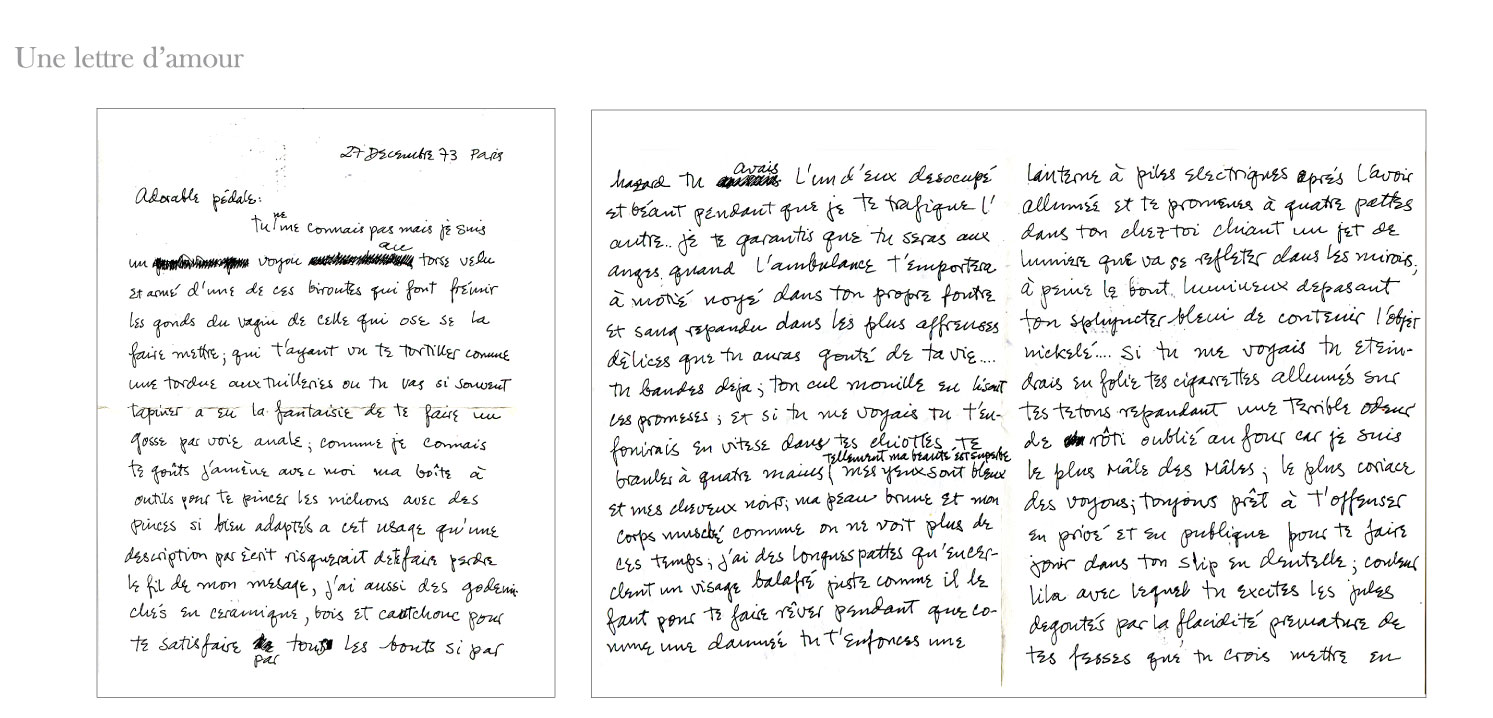 Une lettre d'amour
27 Decembre 73 Paris
Adorable pédale:
Tu ne me connais pas mais je suis
un voyou au torse velu
et armé d'une de ces biroutes qui font frémir
les gonds du vagin de celle qui ose se la
faire mettre; qui t'ayant vu te tortiller comme
une tordue aux tuilleries ou tu vas si souvent
tapiner a eu la fantaisie de te faire un
gosse par voie anale; comme je connais
te goûts j'amène avec moi ma boîte à
outils pour te pincer les nichons avec des
pinces si bien adaptés a cet usage qu'une
description par écrit risquerait de te faire perdre
le fil de mon mesage, j'ai aussi des godemi-
chés en ceramique, bois et caotchouc pour
te satisfaire par tous les bouts si par
hasard tu avais l'un d'eux desocupé
et béant pendant que je te trafique l'
autre.. je te garantis que tu seras aux
anges quand l'ambulance t'emportera
à motié noyé dans ton propre foutre
et sang repandu dans les plus affreuses
délices que tu auras gouté de ta vie....
tu bandes deja; ton cul mouille en lisant
ces promeses; et si tu me voyais tu t'en-
fonirais en vitese dans tes chiottes te
branler à quatre mains tellement ma beauté est superbe
mes yeux sont bleux
et mes cheveux noirs; ma peau brune et mon
corps musclé comme on ne voit plus de
ces temps; j'ai des longues pattes qu'encer-
clent un visage balafré juste comme il le
faut pour te faire rêver pendant que co-
mme une damnée tu t'enfonces une
lanterne à piles electriques aprés l'avoir
allumée et te promenes à quatre pattes
dans ton chez toi chiant un jet de
lumiere que va se refleter dans les mirois,
à peine le bout lumineux depasant
ton sphyncter bleui de contenir l'objet
nickelé.... Si tu me voyais tu etein-
drais en folie tes cigarrettes allumés sur
tes tetons repandant une terrible odeur
de rôti oublié au four car je suis
le plus Mâle des Mâles; le plus coriace
des voyous; toujours prêt à t'offenser
en privé et en publique pour te faire
jouir dans ton slip en dentelle; couleur
lila avec lequel tu excites les jules
degoutés par la flacidité premature de
tes fesses que tu crois mettre en